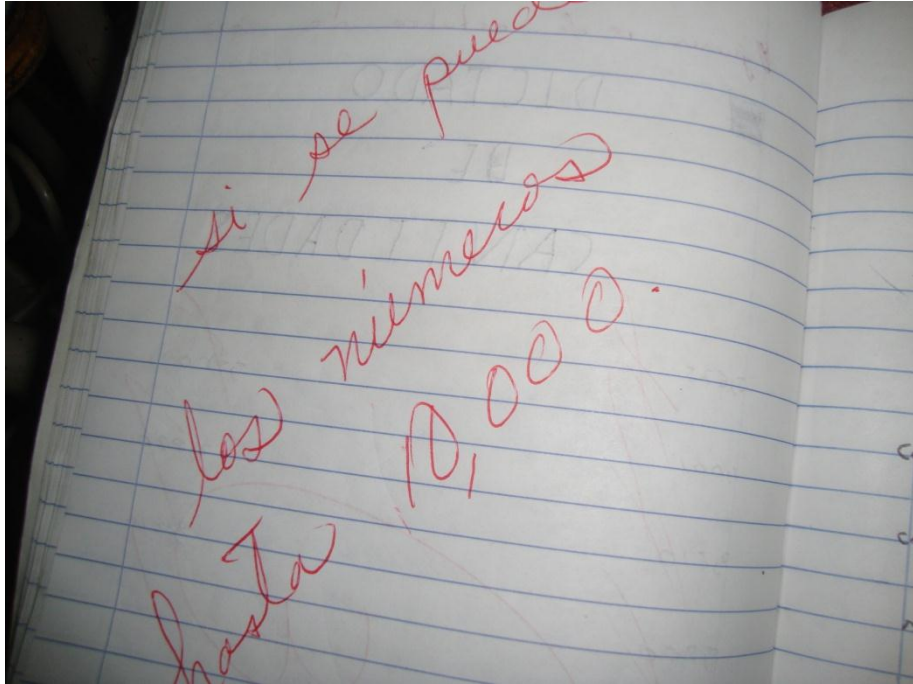 si se pued
los números
hasta 10,000.